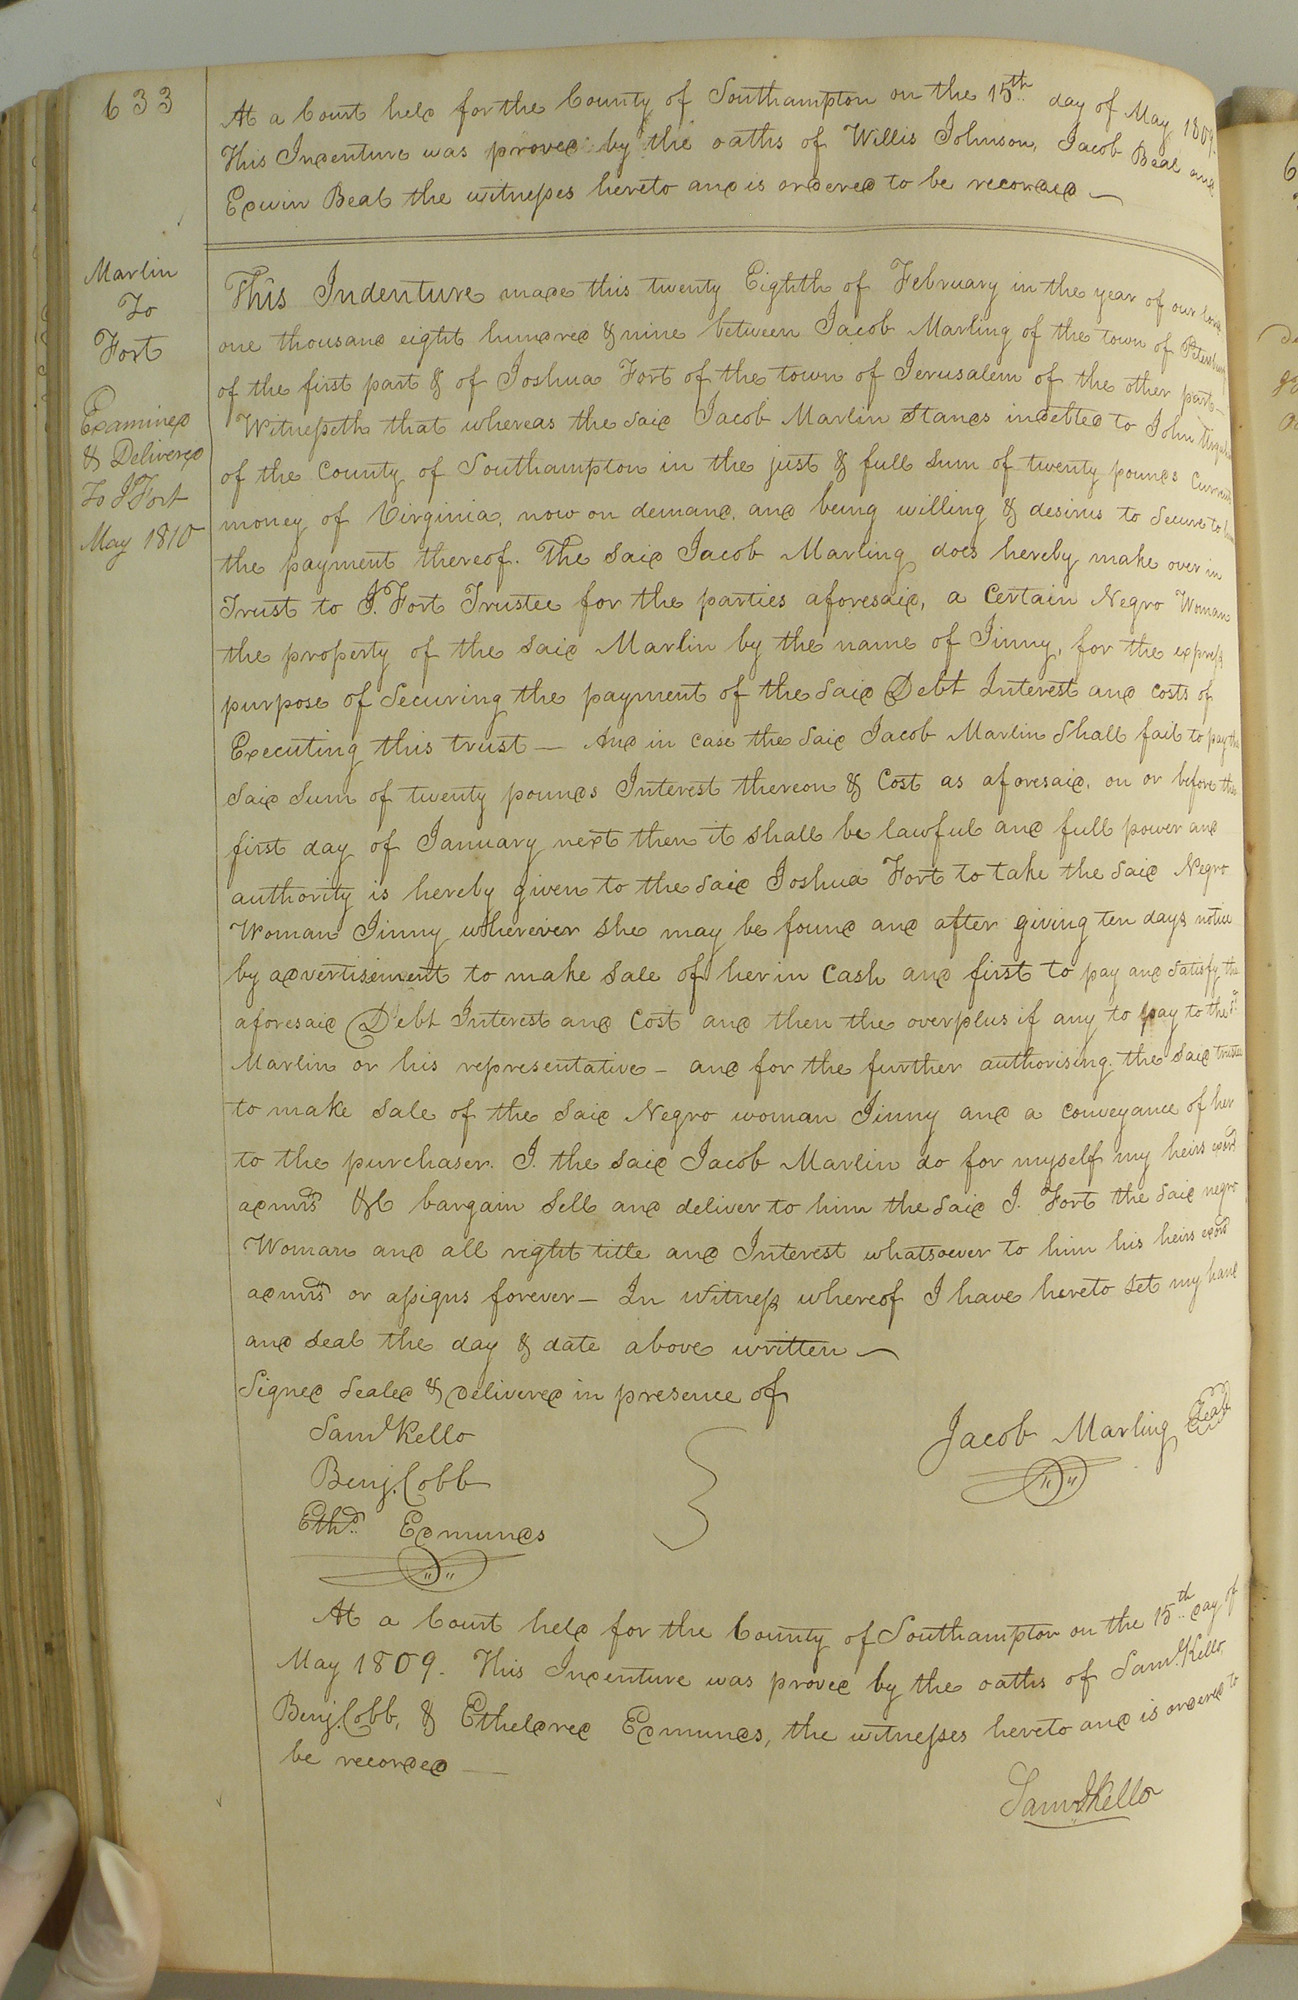 633
At a Court held for the County of Southampton on the 15th day of May 1809.
This Indenture was proved by the oaths of Willis Johnson, Jacob Beal and
Edwin Beal the witnesses hereto and is ordered to be recorded —
Marlin
To
Fort
Examined
& Delivered
To J Fort
May 1810
This Indenture made this twenty Eighth of February in the year of our lord
one thousand eight hundred & nine between Jacob Marling of the town of Petersburg
of the first part & of Joshua Fort of the town of Jerusalem of the other part —
Witnesseth that whereas the said Jacob Marlin Stands indebted to John
of the County of Southampton in the just & full Sum of twenty pounds Current
money of Virginia, now on demand, and being willing & desirus to Secure to him
the payment thereof. The Said Jacob Marling does hereby make over in
Trust to J. Fort Trustee for the parties aforesaid, a Certain Negro Woman
the property of the Said Marlin by the name of Jinny, for the express
purpose of Securing the payment of the Said Debt Interest and costs of
Executing this trust — And in case the Said Jacob Marlin Shall fail to pay the
Said Sum of twenty pounds Interest thereon & Cost as aforesaid, on or before the
first day of January next then it Shall be lawful and full power and
authority is hereby given to the Said Joshua Fort to take the Said Negro
Woman Jinny wherever She may be found and after giving ten days notice
by advertisement to make Sale of her in Cash and first to pay and Satisfy the
aforesaid Debt Interest and Cost and then the overplus if any to pay to the Sd
Marlin or his representative — and for the further authorising the Said trustee
to make Sale of the Said Negro woman Jinny and a Conveyance of her
to the purchaser. I. the Said Jacob Marlin do for myself my heirs exors
admrs &C bargain Sell and deliver to him the Said J. Fort the Said negro
Woman and all right title and Interest whatsoever to him his heirs exors
admrs or assigns forever — In Witness whereof I have hereto Set my hand
and Seal the day & date above written —
Signed Sealed & Delivered in presence of
Saml Kello
Benj. Cobb
Ethd. Edmunds
Jacob Marling Seal
At a Court held for the County of Southampton on the 15th day of
May 1809. This Indenture was proved by the oaths of Saml Kello,
Benj. Cobb, & Etheldred Edmunds, the witnesses hereto and is ordered to
be recorded —
Saml Kello